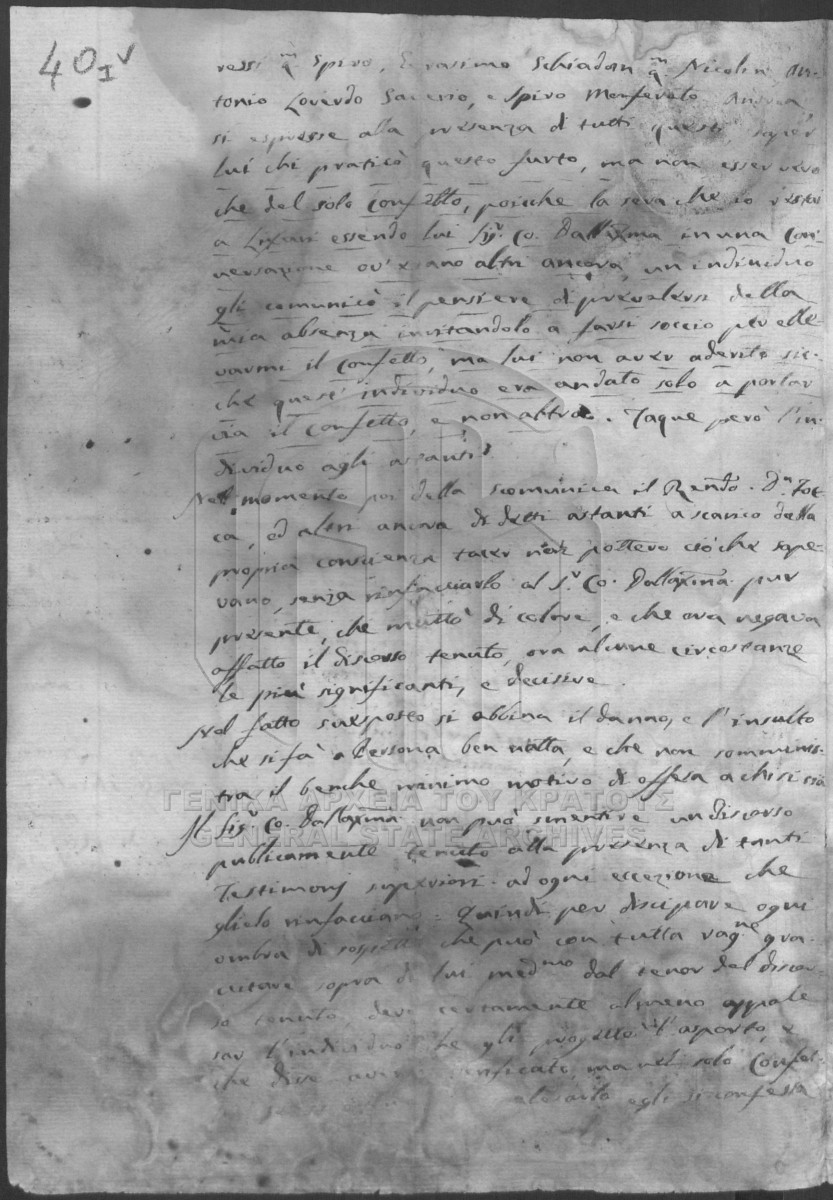 40 I v
ressi qm Spiro, Gerasimo Schiadan qm Nicolin An-
tonio Loverdo Saverio, e Spiro Monferato Andrea
si espresse alla presenza di tutti questi, saper
lui chi praticò questo furto, ma non esser vero
che del solo Confetto, poiche la sera che io restai
a Lixuri essendo lui Sigr. Co. Dallaxma in una Con-
versazione ov'erano altri ancora, un individuo
gli comunicò il pensiere di prevalersi della
mia absenza invitandolo a farsi soccio per elle-
varmi il Confetto, ma lui non aver aderito sic-
che quest'individuo era andato solo a portar
via il Confetto, e non altro. Taque però l'in-
dividuo agli astanti.
Nel momento poi della scomunica il Rendo. Dn.
ca, ed altri ancora di detti astanti a scarico della
propria conscienza tacer non pottero ciò che sape-
vano, senza rinfacciarlo al Sr. Co. Dallaxma pur
presente, che muttò di colore, e che ora negava
affatto il discorso tenuto, ora alcune circostanze
le più significanti, e decisive.
Nel fatto suesposto si abbina il danno, e l'insulto
che si fà a Persona ben natta, e che non somminis-
tra il benche minimo motivo di offesa a chi si sia
Il Sigr. Co. Dallaxma non può smentire un discorso
publicamente tenuto alla presenza di tanti
Testimonj superiori ad ogni eccezione che
glielo rinfacciano = Quindi per discipare ogni
ombra di sospetto che può con tutta ragne gra-
vitare sopra di lui medmo dal tenor del discor-
so tenuto, deve certamente almeno appale
sar l'individuo che gli progettò l'asporto, e
che dise aver verificato, ma nel solo Confet-
egli si confessa
ΓΕΝΙΚΑ ΑΡΧΕΙΑ ΤΟΥ ΚΡΑΤΟΥΣ
GENERAL STATE ARCHIVES